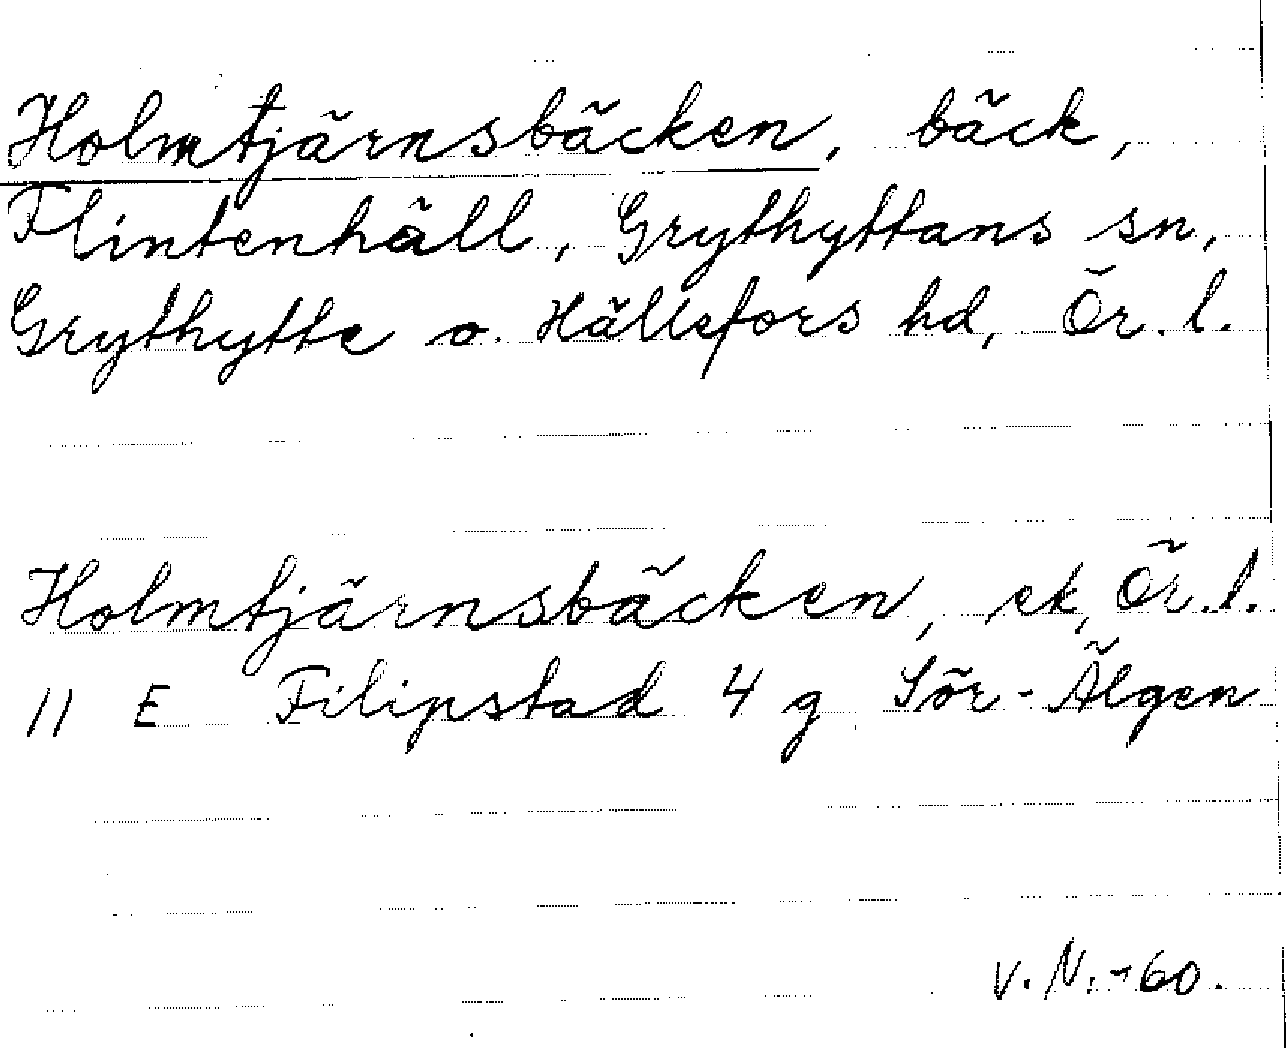 Holmtjärnsbäcken, bäck,
Flintenhäll, Grythyttans sn,
Grythytte o. Hällefors hd, Ör. l.
Holmtjärnsbäcken, ek, Ör. l.
11 E Filipstad 4 g Sör-Älgen
V. N. -60.